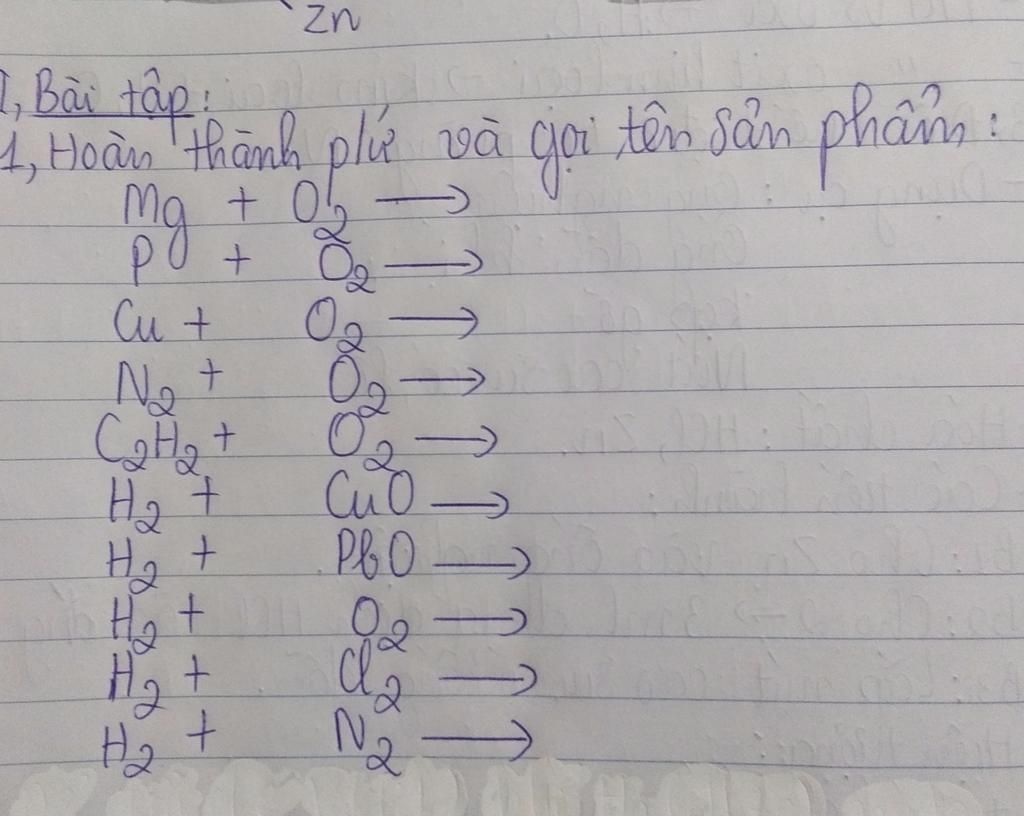 Zn
I, Bài tập:
1, Hoàn thành ptư và gọi tên sản phẩm:
Mg + O₂ →
P + O₂ →
Cu + O₂ →
N₂ + O₂ →
C₂H₂ + O₂ →
H₂ + CuO →
H₂ + PbO →
H₂ + O₂ →
H₂ + Cl₂ →
H₂ + N₂ →